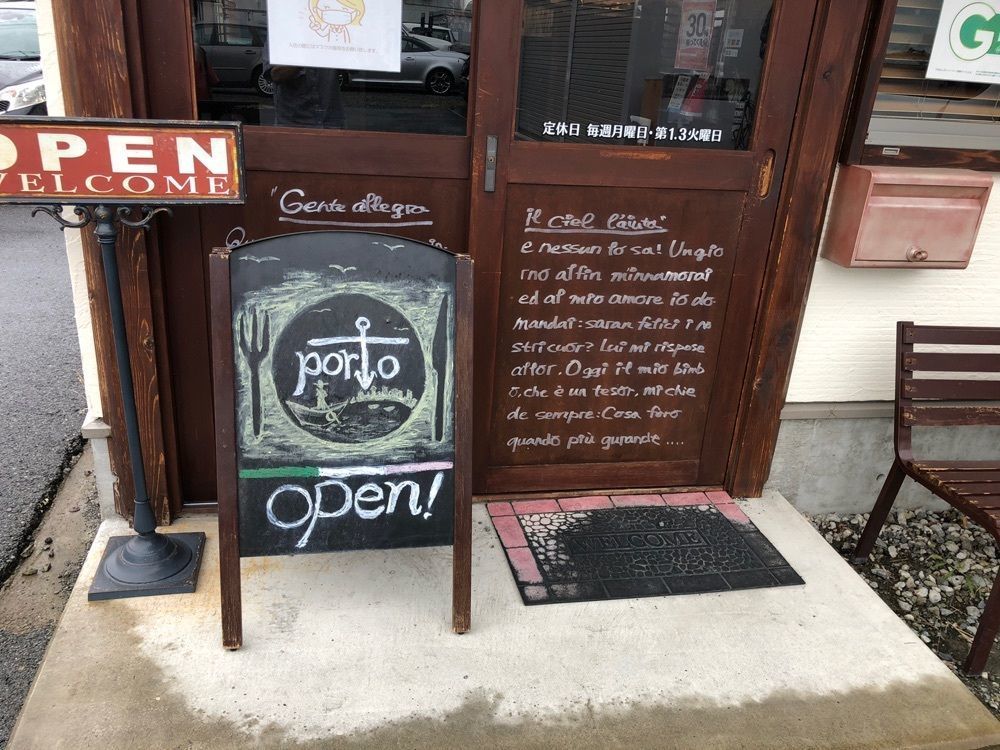 OPEN
WELCOME
30
G
定休日 毎週月曜日・第1.3火曜日
"Gente allegra
il ciel l'aiuta"
e nessun io sa! Un gio
rno alfin m'innamorai
ed al mio amore io do
mandai: saran felici i no
stri cuor? Lui mi rispose
allor. Oggi il mio bimb
o, che è un tesor, mi chie
de sempre: Cosa farò
quando più gurande ....
porto
open!
WELCOME